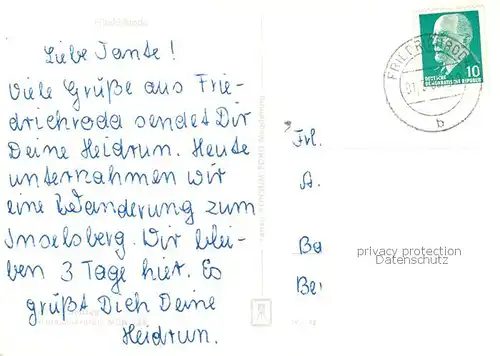 Liebe Tante!
Viele Grüße aus Frie-
drichroda sendet Dir
Deine Heidrun. Heute
unternahmen wir
eine Wanderung zum
Inselsberg. Wir blei-
ben 3 Tage hier. Es
grüßt Dich Deine
Heidrun.
10
DEUTSCHE
DEMOKRATISCHE REPUBLIK
b
Frl.
A.
Ba
Be
privacy protection
Datenschutz